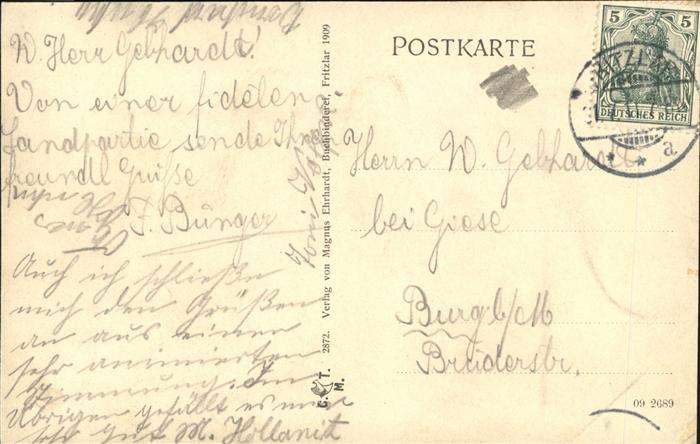 W. Herr Gebhardt!
Von einer fidelen
Landpartie sende Ihnen
freundl Grüsse
F. Bünger
Auch ich schließe
mich den Grüßen
an aus einer
sehr animierten
Stimmung. Im
Übrigen gefällt es mir
sehr gut M. Hollanik
2872. Verlag von Magnus Ehrhardt, Buchbinderei, Fritzlar 1909
C. T.
M.
POSTKARTE
5 5
DEUTSCHES REICH
FRITZLAR
* * a
Herrn W. Gebhardt
bei Giese
Burg b/M
Brüderstr.
09 2689